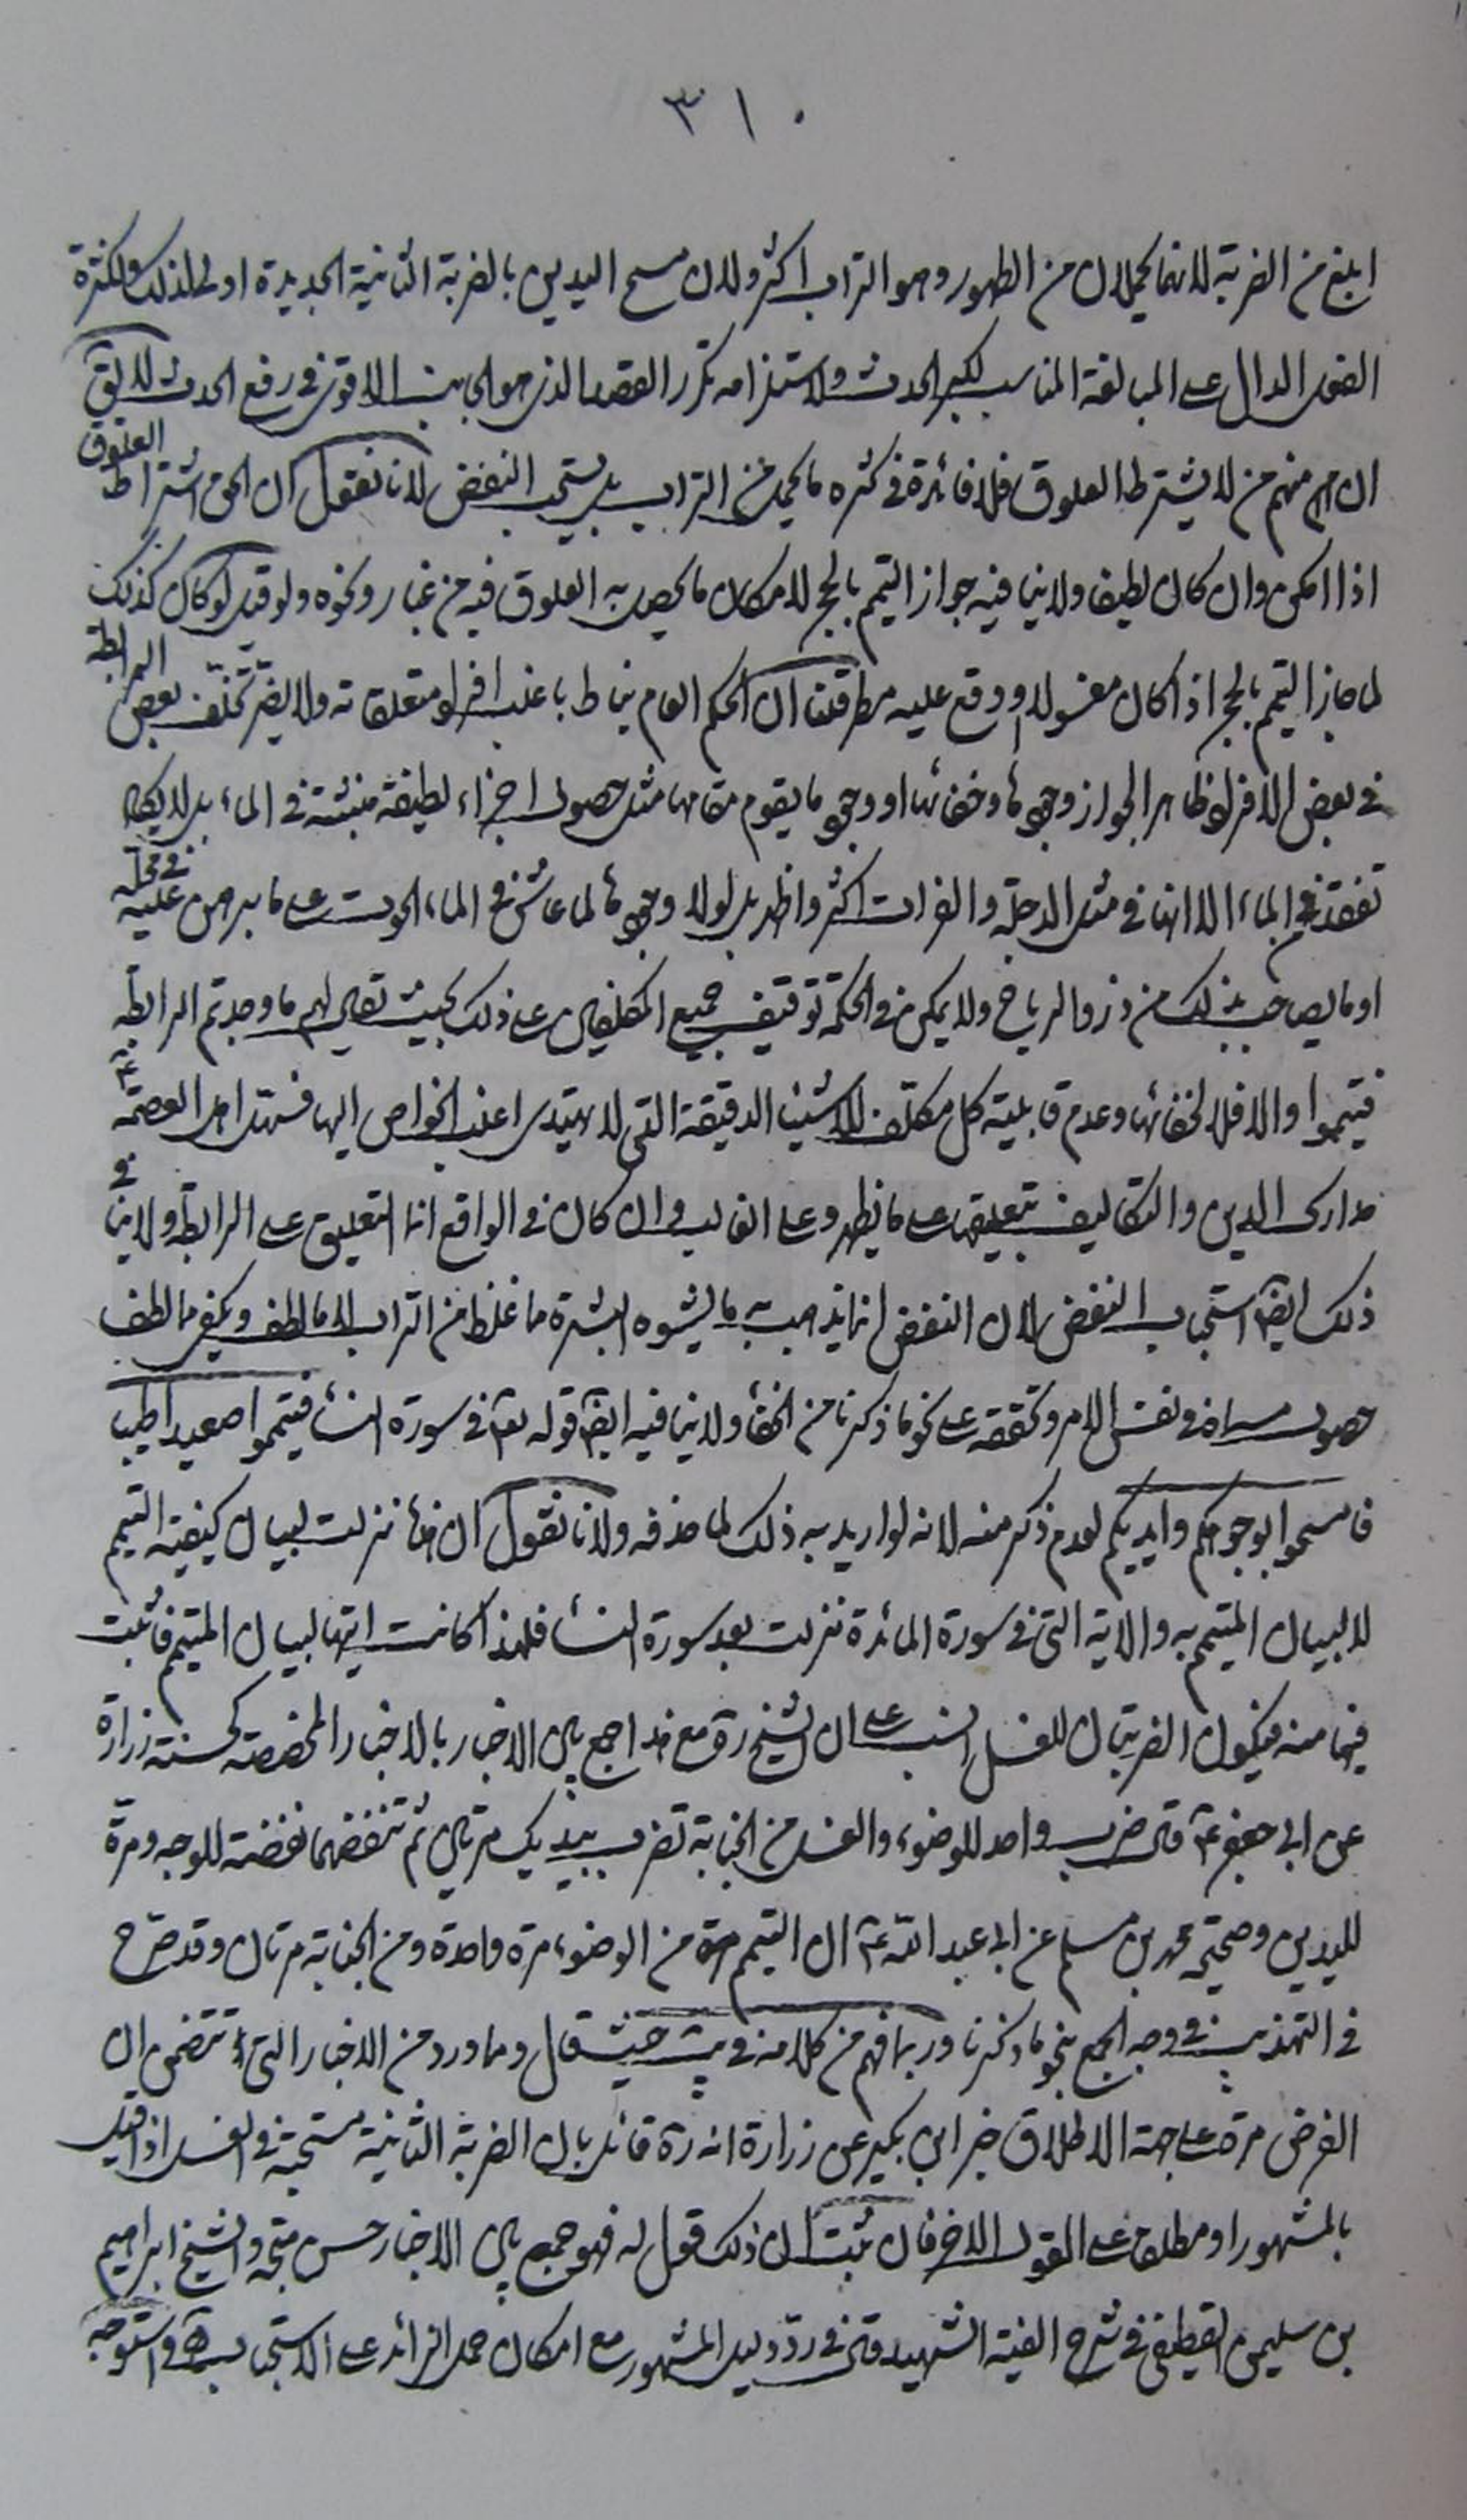 ٣١٠
ابلغ من الضربة لانهما يحملان من الطهور وهو التراب اكثر ولان مسح اليدين بالضربة الثانية الجديدة اولى لذلك ولكثرة
الفعل الدال على المبالغة المناسب لكبر الحدث ولاستلزامه تكرر القصد الذي هو الجانب الاقوى في رفع الحدث لا يق
ان منهم من لا يشترط العلوق فلا فائدة في كثره ما يحمل من التراب بل يستحب النفض لانا نقول ان الحق اشتراط العلوق
اذا امكن وان كان لطيفا ولا ينافيه جواز التيمم بالحجر لامكان ما يحصل به العلوق فيه من غبار ونحوه ولو قيل لو كان كذلك
لما جاز التيمم بالحجر اذا كان مغسولا او وقع عليه مطر قلنا ان الحكم العام يناط باغلب افراد متعلقاته ولا يضر تخلف بعض الرابطة
في بعض الافراد لظاهر الجواز وجودها وخفائها او وجود ما يقوم مقامها مثل حصول اجزاء لطيفة منبثة في الماء بل لا يكاد
تفقد في الماء الا انها في مثل الدجلة والفرات اكثر واظهر بل لولا وجودها لما عاش في الماء الحوت على ما برهن عليه في محله
او ما يصاحب ذلك من ذرو الرياح ولا يمكن في الحكمة توقيف جميع المكلفين على ذلك بحيث يقال لهم ما وجدتم الرابطة
فتيمموا والا فلا لخفائها وعدم قابلية كل مكلف للاشياء الدقيقة التي لا يهتدي اغلب الخواص اليها فسهل اهل العصمة ع
مدارك الدين والتكاليف بتعليقها على ما يظهر وعلى الغالب وان كان في الواقع انما التعليق على الرابطة ولا ينافي
ذلك ايضا استحباب النفض لان النفض انما يذهب به ما يشوه البشرة مما غلظ من التراب لا ما لطف ويكفي ما لطف
حصول مسماه في نفس الامر وتحققه على نحو ما ذكرنا من الخفاء ولا ينافيه ايضا قوله تع في سورة النساء فتيمموا صعيدا طيبا
فامسحوا بوجوهكم وايديكم لعدم ذكر منه لانه لو اريد به ذلك لما حذفه ولانا نقول ان هذه نزلت لبيان كيفية التيمم
لا لبيان المتيمم به والاية التي في سورة المائدة نزلت بعد سورة النساء فلهذا كانت ايتها لبيان المتيمم فاثبت
فيها منه فيكون الضربتان للغسل انسب على ان الشيخ ره مع قد اجمع بين الاخبار بالاخبار المخصصة كحسنة زرارة
عن ابي جعفر ع قال ضرب واحد للوضوء والغسل من الجنابة تضرب بيديك مرتين ثم تنفضهما نفضة للوجه ومرة
لليدين وصحيحة محمد بن مسلم عن ابي عبد الله ع ان التيمم من الوضوء مرة واحدة ومن الجنابة مرتان وقد صرح
في التهذيب في وجه الجمع بنحو ما ذكرنا وربما فهم من كلامه في يب حيث قال وما ورد من الاخبار التي تتضمن ان
الفرض مرة على جهة الاطلاق خبر ابن بكير عن زرارة انه ره قائل بان الضربة الثانية مستحبة في الغسل اذا قيل
بالمشهور او مطلقا على القول الاخر فان ثبت ان ذلك قول له فهو جمع بين الاخبار حسن متجه والشيخ ابراهيم
بن سليمن القطيفي في شرح الفية الشهيد قال في رد دليل المشهور مع امكان حمل الزائد على الاستحباب واستوجه